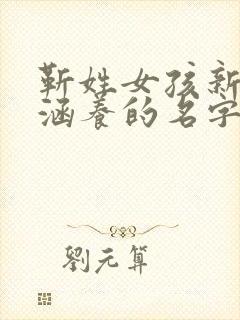 靳姓女孩新
涵养的名字
劉元算